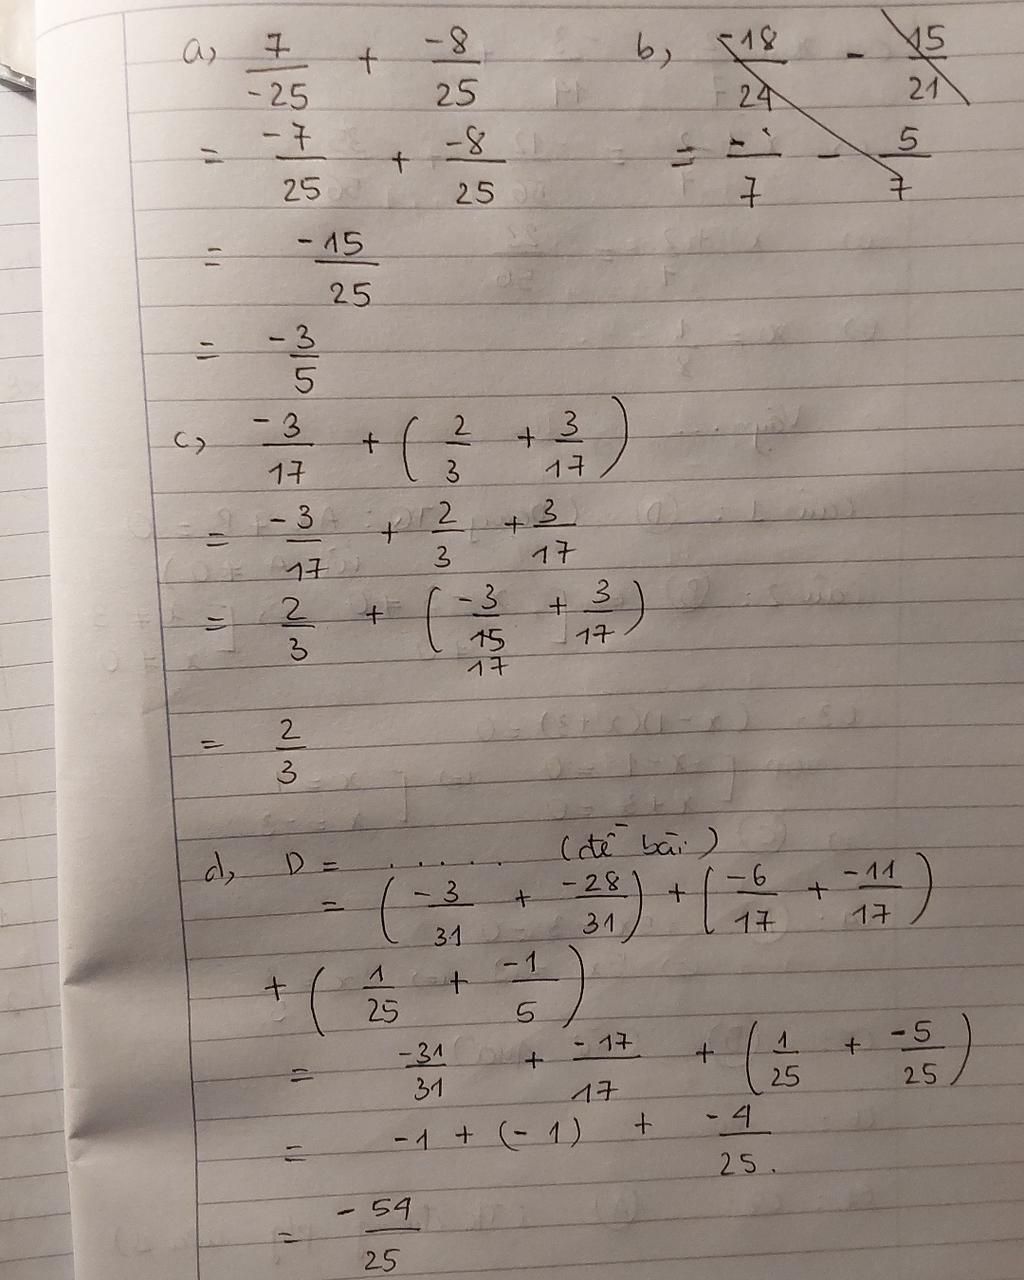 a, 7/-25 + -8/25 b, -18/24 - 15/21
= -7/25 + -8/25 = -/7 - 5/7
= -15/25
= -3/5
c, -3/17 + (2/3 + 3/17)
= -3/17 + 2/3 + 3/17
= 2/3 + (-3/15 + 3/17)
17
= 2/3
d, D = ...... (đề bài)
= (-3/31 + -28/31) + (-6/17 + -11/17)
+ (1/25 + -1/5)
= -31/31 + -17/17 + (1/25 + -5/25)
= -1 + (-1) + -4/25.
= -54/25